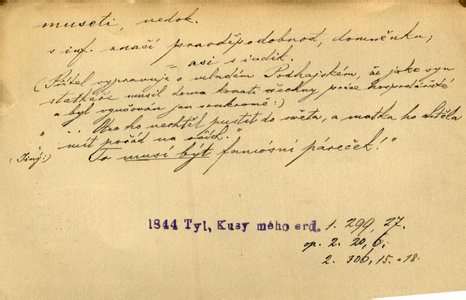 museti, nedok.
s inf. značí pravděpodobnost, domněnku;
= asi s indik.
(Přítel vypravuje o mladém Podhajském, že jako syn
statkáře musil doma konati všechny práce hospodářské
a byl vyučován jen soukromě:)
" .. Otec ho nechtěl pustit do světa, a matka ho chtěla
mít pořád na očích."
(Jiný:) "To musí být famósní páreček!"
1844 Tyl, Kusy mého srd. 1. 299, 27.
op. 2. 20, 6.
2. 306, 15. a 18.